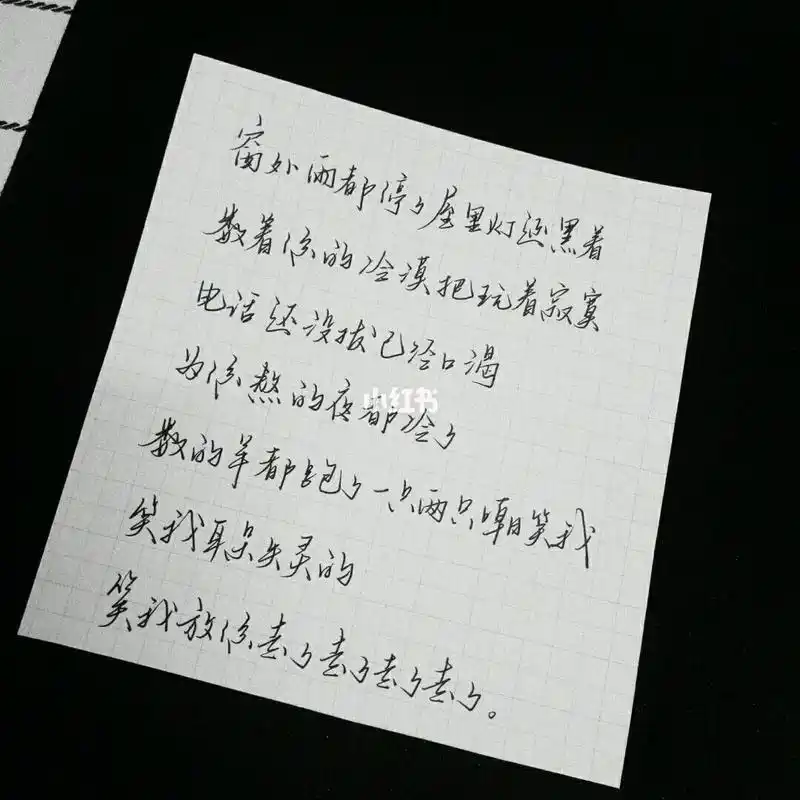 窗外雨都停了屋里灯还黑着
数着你的冷漠把玩着寂寞
电话还没拔已经口渴
为你熬的夜都冷了
数的羊都跑了一只两只嘲笑我
笑我耳朵失灵的
笑我放你走了走了走了走了。
小红书